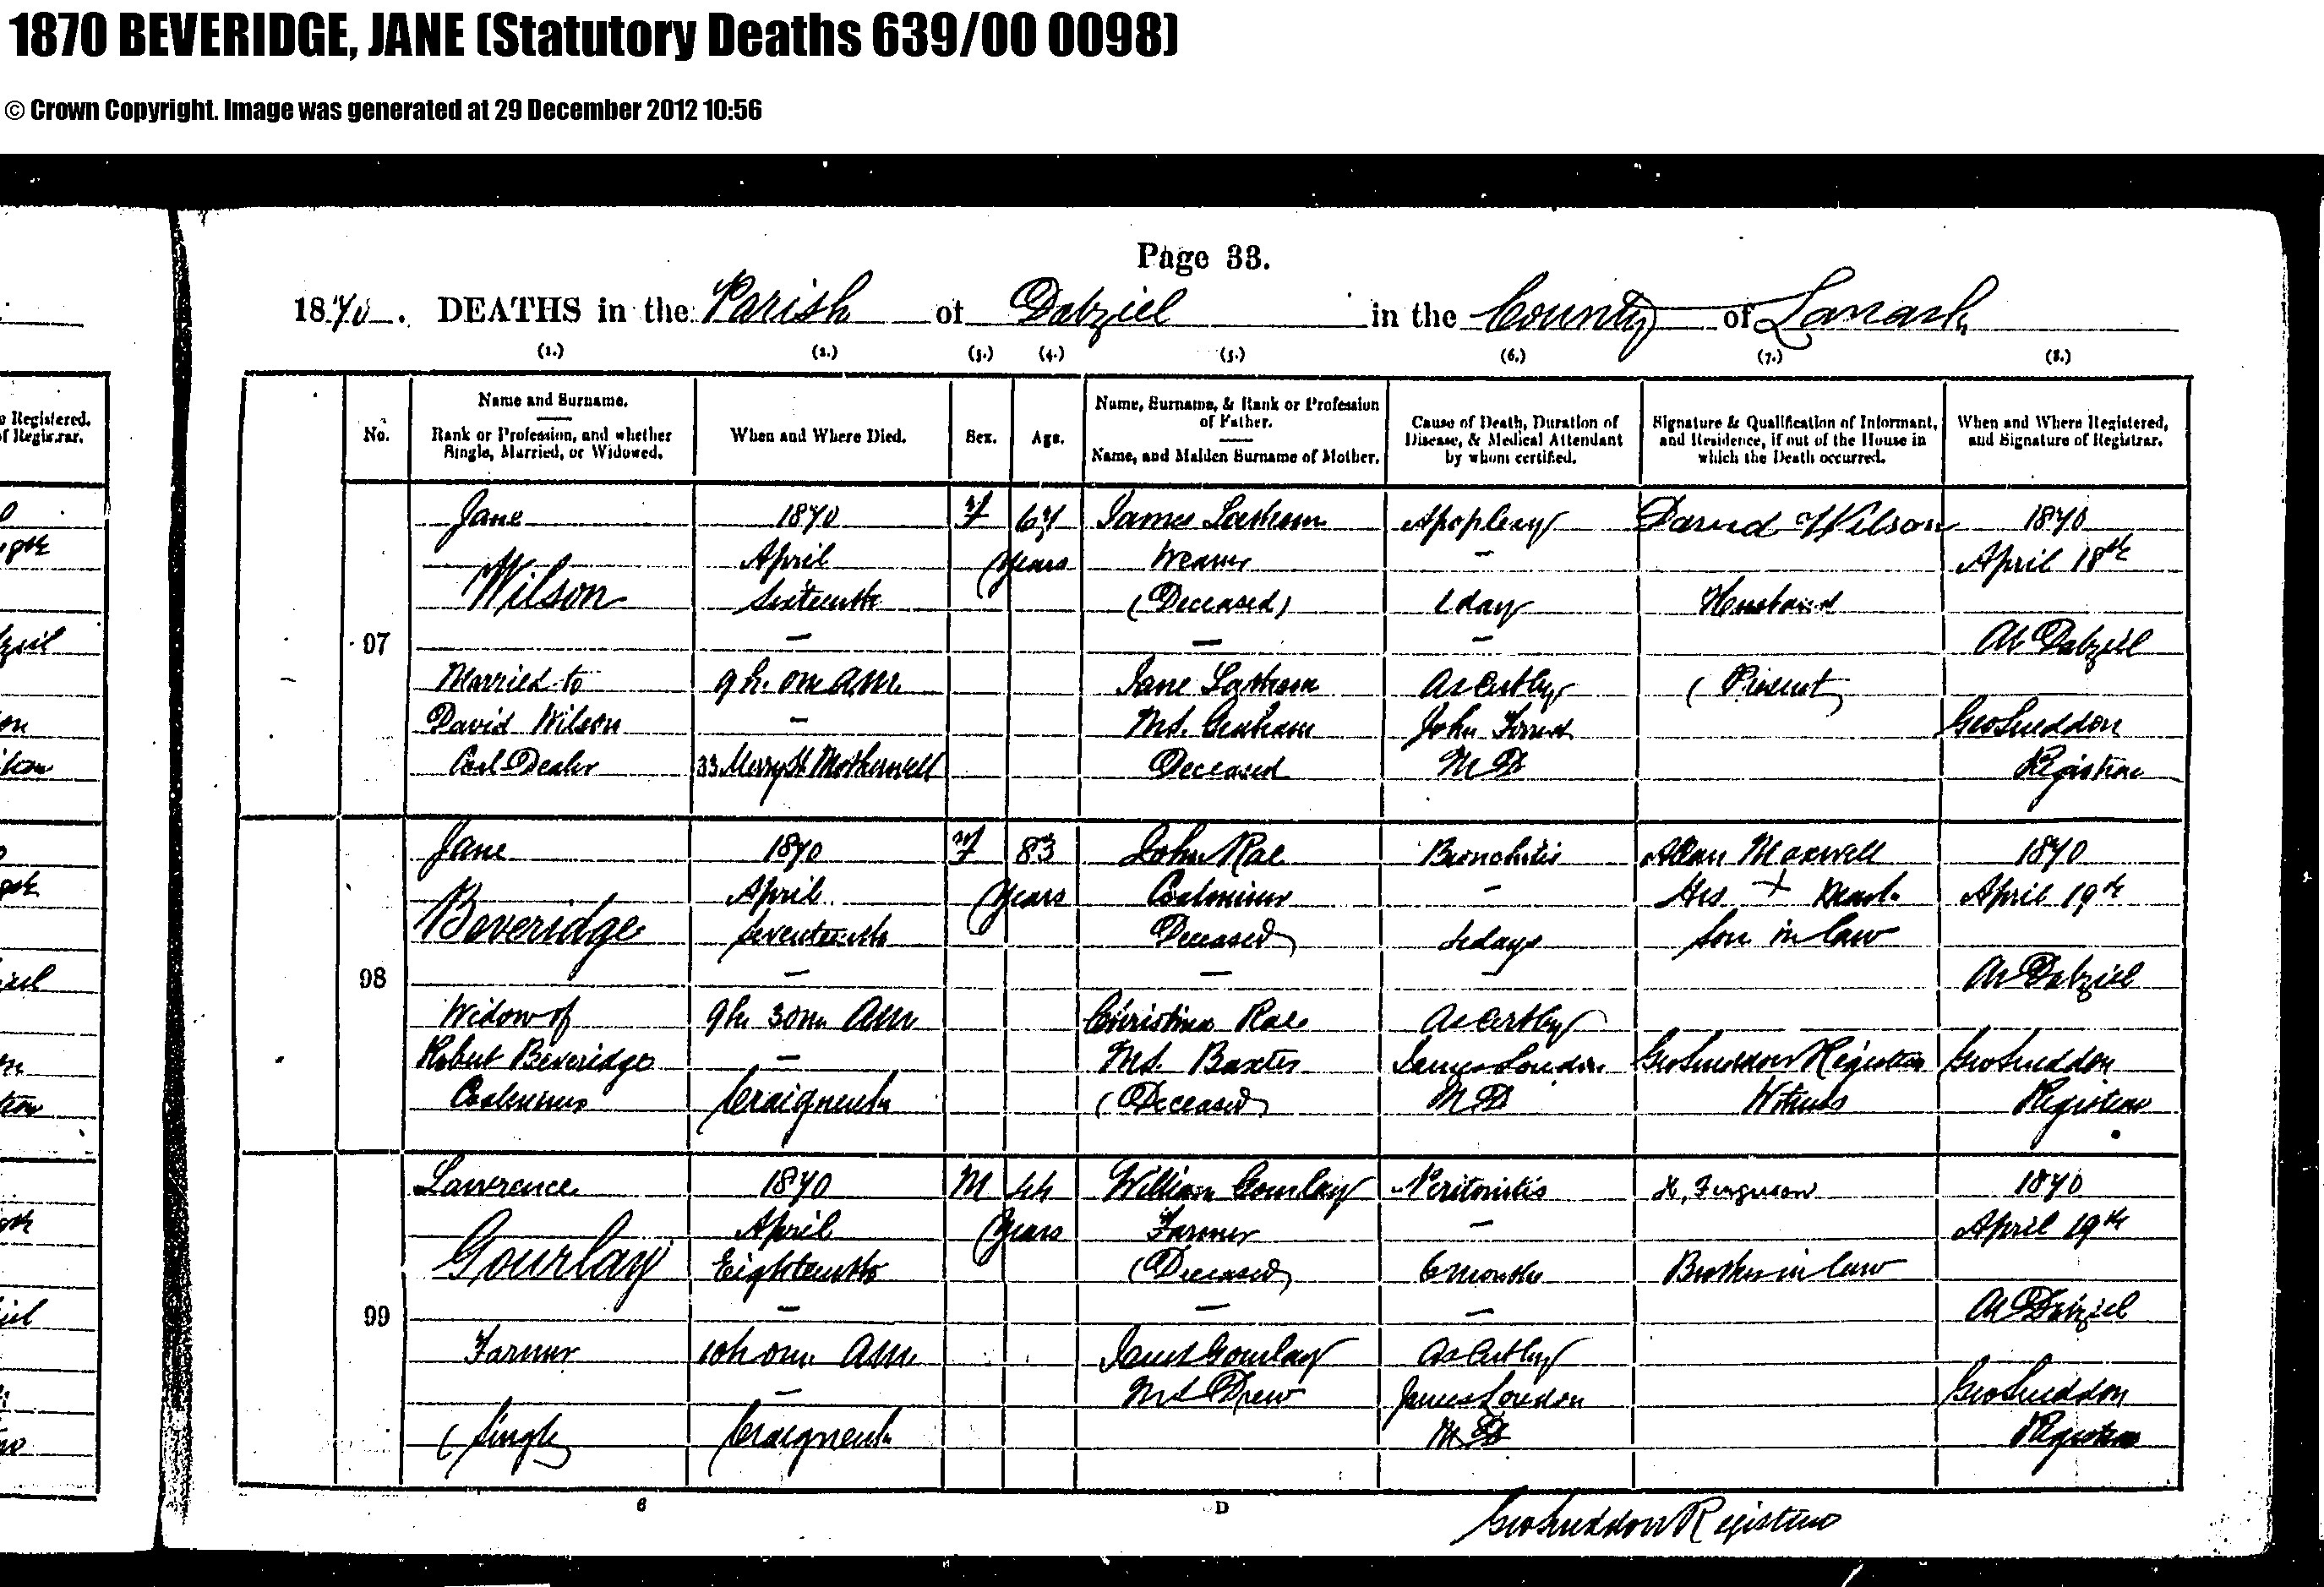 1870 BEVERIDGE, JANE (Statutory Deaths 639/00 0098)
© Crown Copyright. Image was generated at 29 December 2012 10:56
Page 33.
1870. DEATHS in the Parish of Dalziel in the County of Lanark
(1.) (2.) (3.) (4.) (5.) (6.) (7.) (8.)
No.
Name and Surname.
Rank or Profession, and whether
Single, Married, or Widowed.
When and Where Died.
Sex.
Age.
Name, Surname, & Rank or Profession
of Father.
Name, and Maiden Surname of Mother.
Cause of Death, Duration of
Disease, & Medical Attendant
by whom certified.
Signature & Qualification of Informant,
and Residence, if out of the House in
which the Death occurred.
When and Where Registered,
and Signature of Registrar.
97
Jane
Wilson
Married to
David Wilson
Coal Dealer
1870
April
Sixteenth
9h. 0m AM.
33 Merry St Motherwell
F
67
Years
James
Weaver
(Deceased)
Jane
M.S. Graham
Deceased
Apoplexy
1 day
As Cert by
John
MD
David Wilson
Husband
(Present)
1870
April 18th
At Dalziel
Geo Sneddon
Registrar
98
Jane
Beveridge
Widow of
Robert Beveridge
Coalminer
1870
April
Seventeenth
9h. 30m AM
Craigneuk
F
83
Years
John Rae
Coalminer
Deceased
Christina Rae
M.S. Baxter
(Deceased)
Bronchitis
days
As Cert by
James Loudon
MD
Allan Maxwell
His + Mark
Son in law
Geo Sneddon Registrar
Witness
1870
April 19th
At Dalziel
Geo Sneddon
Registrar
99
Lawrence
Gourlay
Farmer
(Single)
1870
April
Eighteenth
10h 0m AM
Craigneuk
M
44
Years
William Gourlay
Farmer
(Deceased)
Janet Gourlay
MS Drew
Peritonitis
6 months
As Cert by
James Loudon
MD
Ferguson
Brother in law
1870
April 19th
At Dalziel
Geo Sneddon
Registrar
D
Geo Sneddon Registrar